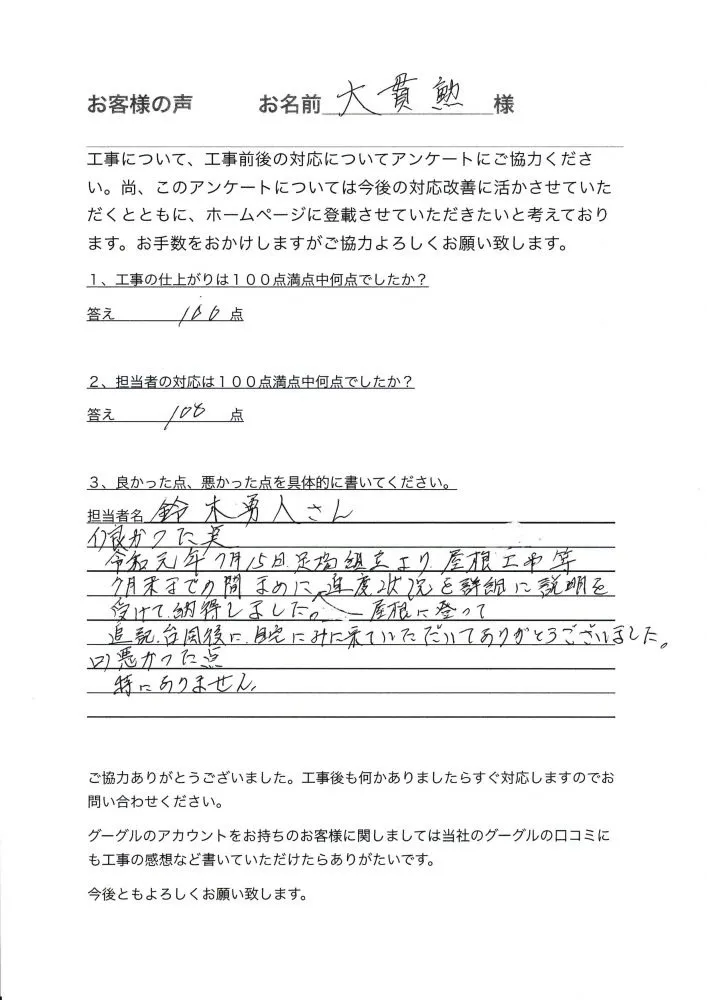 お客様の声 お名前 大貫勲 様
工事について、工事前後の対応についてアンケートにご協力くださ
い。尚、このアンケートについては今後の対応改善に活かさせていた
だくとともに、ホームページに登載させていただきたいと考えており
ます。お手数をおかけしますがご協力よろしくお願い致します。
1、工事の仕上がりは100点満点中何点でしたか?
答え 100 点
2、担当者の対応は100点満点中何点でしたか?
答え 100 点
3、良かった点、悪かった点を具体的に書いてください。
担当者名 鈴木勇人さん
イ)良かった点
令和元年7月15日足場組立より屋根工事等
7月末までの間まめに進度状況を詳細に説明を
受けて納得しました。 屋根に登って
追記.台風後に自宅にみに来ていただいてありがとうございました。
ロ)悪かった点
特にありません。
ご協力ありがとうございました。工事後も何かありましたらすぐ対応しますのでお
問い合わせください。
グーグルのアカウントをお持ちのお客様に関しましては当社のグーグルの口コミに
も工事の感想など書いていただけたらありがたいです。
今後ともよろしくお願い致します。